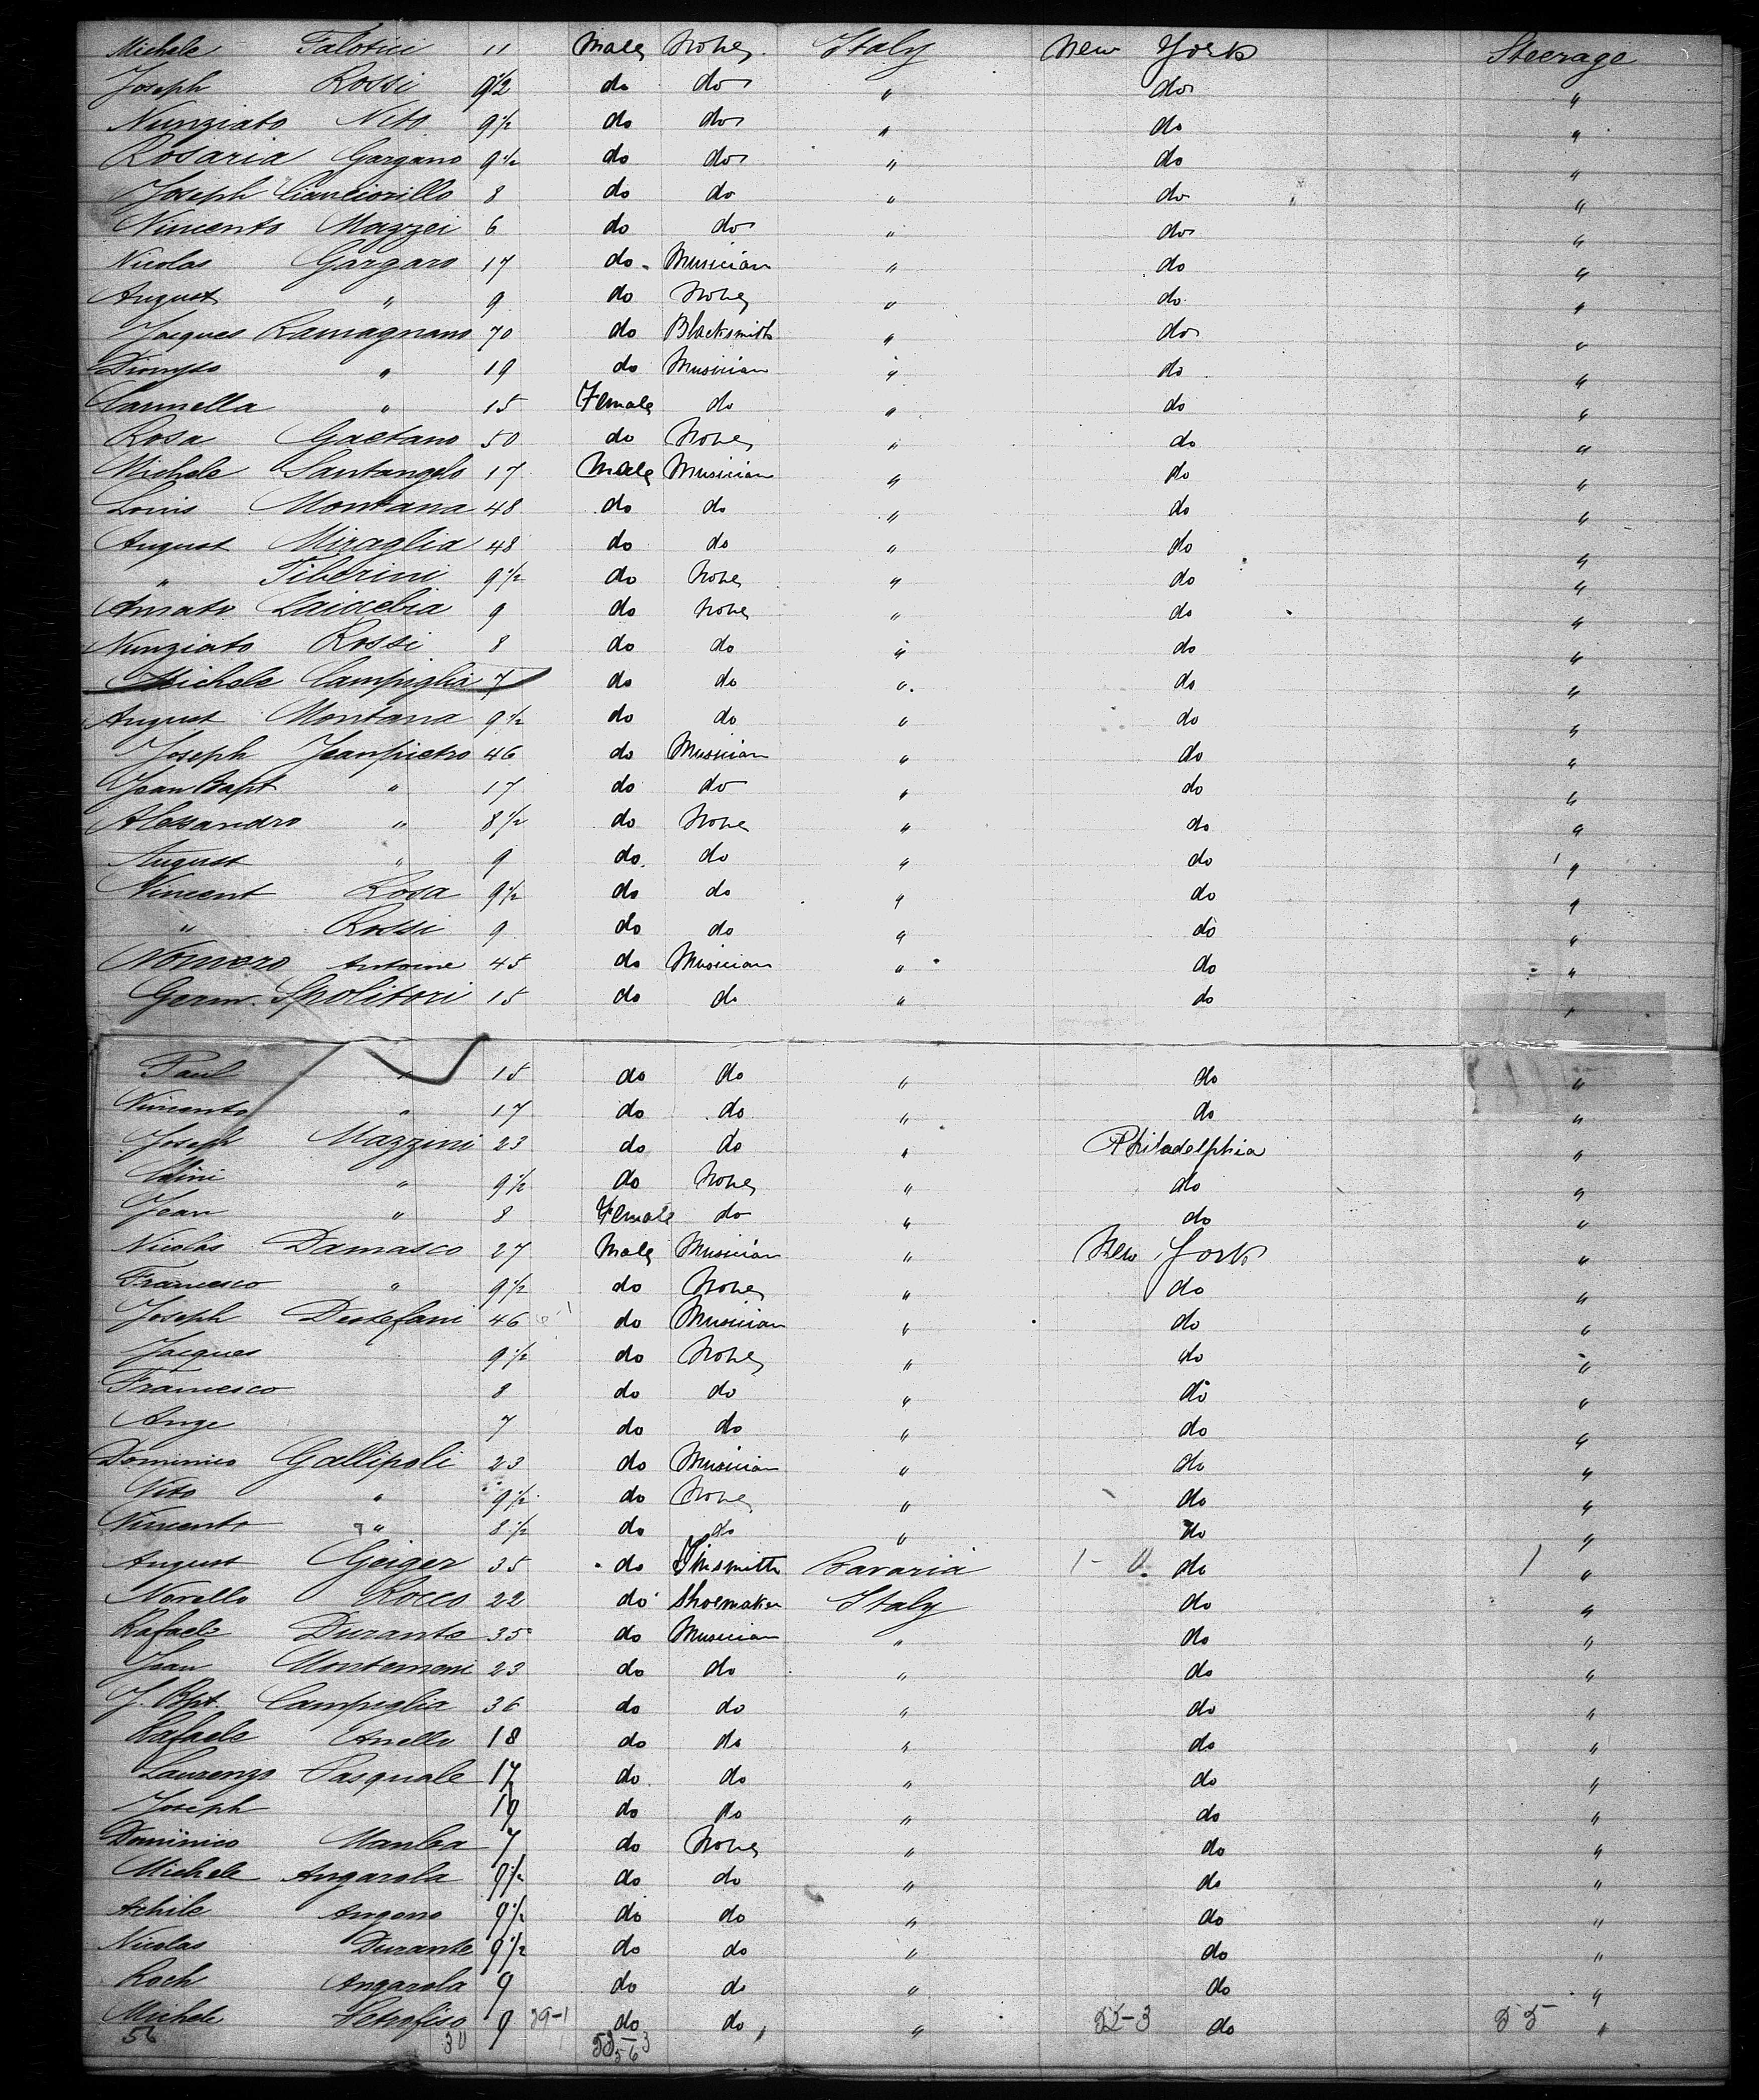 Michele Talotici 11 Male None Italy New York Steerage
Joseph Rossi 9 1/2 do do " do "
Nunziato Nito 9 1/2 do do " do "
Rosaria Gargano 9 1/2 do do " do "
Joseph Cianciorillo 8 do do " do "
Vincento Mazzei 6 do do " do "
Nicolas Gargaro 17 do Musician " do "
August " 9 do None " do "
Jacques Ramagnano 70 do Blacksmith " do "
Dionyso " 19 do Musician " do "
Carmella " 15 Female do " do "
Rosa Gaetano 50 do None " do "
Michele Santangelo 17 Male Musician " do "
Louis Montana 48 do do " do "
August Miraglia 48 do do " do "
" Tiberini 9 1/2 do None " do "
Amato 9 do None " do "
Nunziato Rossi 8 do do " do "
Michele Campiglia 7 do do " do "
August Montana 9 1/2 do do " do "
Joseph Jeanpietro 46 do Musician " do "
Jean Bapt " 17 do do " do "
Alessandro " 8 1/2 do None " do "
August " 9 do do " do "
Vincent Rosa 9 1/2 do do " do "
" Rossi 9 do do " do "
Antoine 45 do Musician " do "
Germ. Spolitori 15 do do " do "
Paul " 15 do do " do "
Vincento " 17 do do " do "
Joseph Mazzini 23 do do " Philadelphia "
" 9 1/2 do None " do "
Jean " 8 Female do " do "
Nicolas Damasco 27 Male Musician " New York "
Francesco " 9 1/2 do None " do "
Joseph Destefani 46 do Musician " do "
Jacques 9 1/2 do None " do "
Francesco 8 do do " do "
Ange 7 do do " do "
Dominico Gallipoli 23 do Musician " do "
Vito " 9 1/2 do None " do "
Vincento " 8 1/2 do do " do "
August Geiger 35 do Tinsmith Bavaria do 1 "
Novello Rocco 22 do Shoemaker Italy do "
Rafaele Durante 35 do Musician " do "
Jean Montemeni 23 do do " do "
J. Bpt. Campiglia 36 do do " do "
Rafaele Anello 18 do do " do "
Laurenzo Pasquale 17 do do " do "
Joseph 19 do do " do "
Dominico Manba 7 do None " do "
Michele Angarola 9 1/2 do do " do "
Achile Angono 9 1/2 do do " do "
Nicolas Durante 9 1/2 do do " do "
Roch Angarola 9 do do " do "
Michele Petrofiso 9 29-1 do do " 52-3 do 55 "
56 30 53-3
56